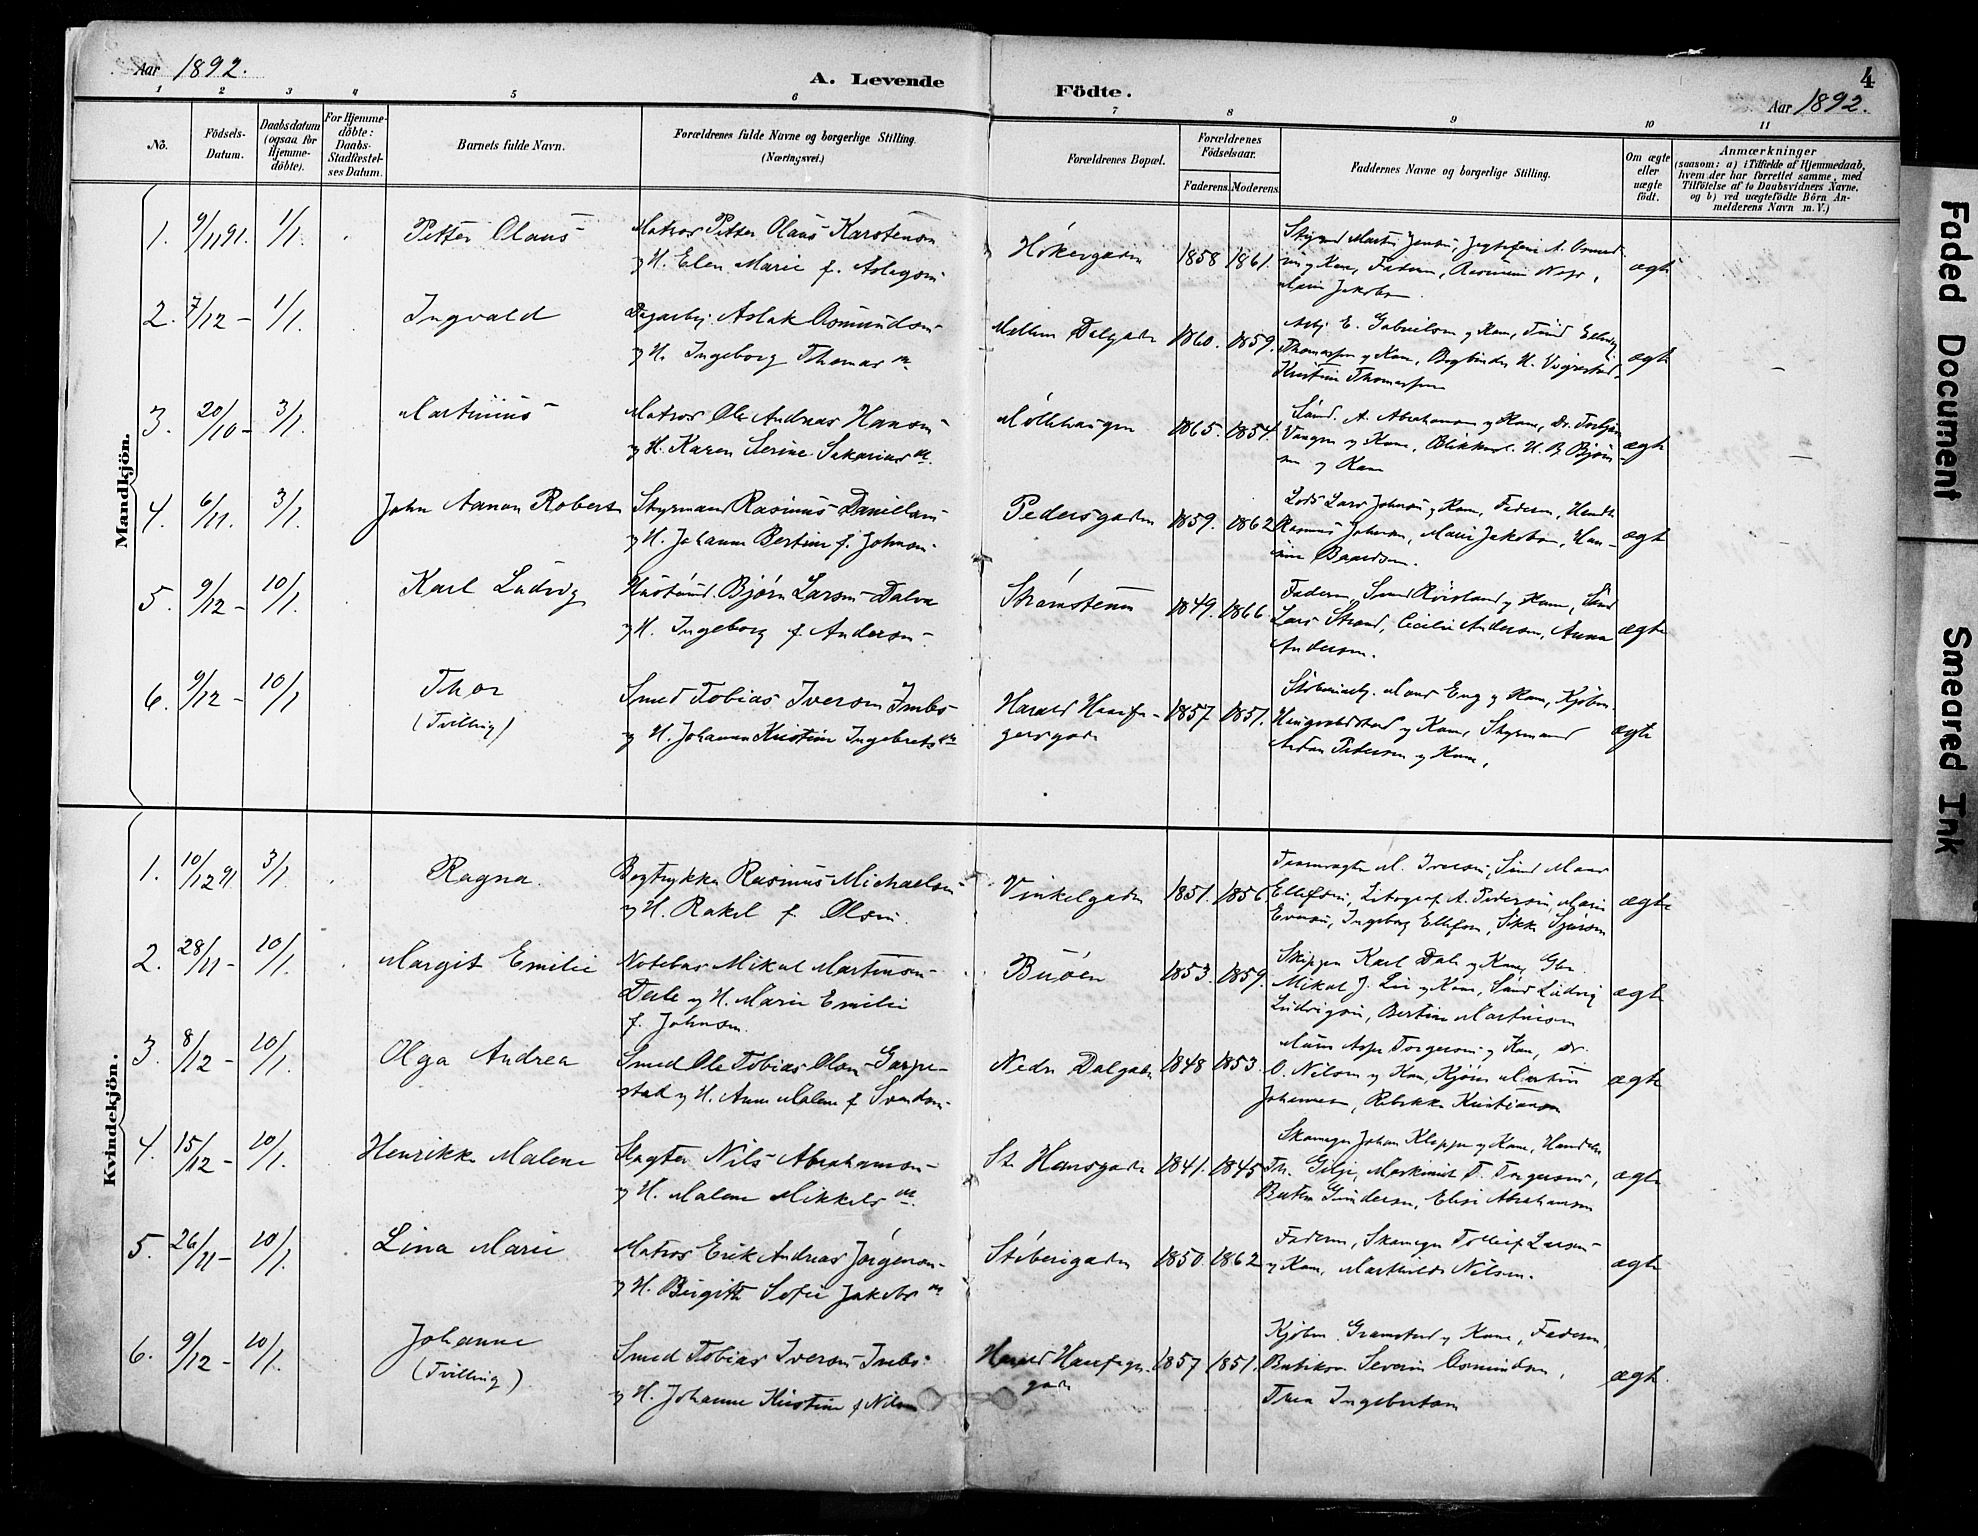 Aar 1892.
A. Levende
Födte.
4
Aar 1892.
1 2 3 4 5 6 7 8 9 10 11
No.
Födsels-Datum.
Daabsdatum (ogsaa for Hjemme-döbte).
For Hjemme-döbte: Daabs-Stadfæstel-ses Datum.
Barnets fulde Navn.
Forældrenes fulde Navne og borgerlige Stilling.
(Næringsvei.)
Forældrenes Bopæl.
Forældrenes Födselsaar.
Faderens. Moderens.
Faddernes Navne og borgerlige Stilling.
Om ægte eller uægte födt.
Anmærkninger
(saasom: a) i Tilfælde af Hjemmedaab,
hvem der har forrettet samme, med
Tilföielse af to Daabsvidners Navne.
og b) ved uægtefödte Börn An-
melderens Navn m. V.)
Mandkjön.
1. 9/11 91. 1/1. Petter Olaus Matros Petter Olaus Karstensen
og H. Elen Marie f. Aslagsen
Høkergaden 1858 1861. ægte
2. 7/12 - 1/1. Ingvald Aslak Osmundsen
og H. Ingeborg Thomas
Mellem Dalgaden 1860. 1859. E. Gabrielsen og Kone,
Thomassen og Kone, Bogbinder H. Vigrestad,
Kristine Thomassen
ægte
3. 20/10 - 3/1. Martinius Matros Ole Andreas Hansen
og H. Karen Serine Sakarias
Møllehaugen 1865. 1854. A. Abrahamsen og Kone,
og Kone
ægte
4. 6/11. 3/1. John Aanon Robert Styrmand Rasmus Danielsen
og H. Johanne Bertine f. Johnsen
Pedersgaden 1859. 1862 Lods Lars Johnsen og Kone, Faderen,
Rasmus Johnsen, Marie Jakobsen,
Baardsen.
ægte
5. 9/12 - 10/1. Karl Ludvig Bjørn Larsen Dalva
og H. Ingeborg f. Andersen
Strømstenen 1849. 1866. Faderen, og Kone,
Lars Strand, Cecilie Andersen, Anna
Andersen.
ægte
6. 9/12 - 10/1. Thor
(Tvilling)
Smed Tobias Iversen Imbs
og H. Johanna Kristine Ingebrets
Harald Haarfa-
gersgade
1857. 1851. Støberiarb. Maus Eng og Kone, Kjøbm.
og Kone, Styrmand
Pedersen og Kone,
ægte
Kvindekjön.
1. 10/12 91 3/1. Ragna. Bogtrykker Rasmus Michaelsen
og H. Rakel f. Olsen
Vinkelgaden 1851. 1856 M. Iversen,
Ellefsen, Litograf A. Pedersen, Marie
Iversen, Ingeborg Ellefsen,
ægte
2. 28/11 - 10/1. Margit Emilie Notebas Mikal Martinsen
og H. Marie Emilie
f. Johnsen.
Buøen 1853. 1859. Skipper Karl Dale og Kone,
Mikal J. Lie og Kone, Ludvig
Ludvigsen, Bertine Martinsen
ægte
3. 8/12 - 10/1. Olga Andrea Smed Ole Tobias Olsen Garpe-
stad og H. Anne Malene f. Svendsen
Nedre Dalgade 1848 1853. Torgersen og Kone,
O. Nilsen og Kone, Martin
Johannesen, Rebekka Kristiansen
ægte
4. 15/12 - 10/1. Henrikke Malene Slagter Nils Abrahamsen
og H. Malene Mikkels
St. Hansgade 1841. 1845 Skomager Johan Kleppe og Kone,
Th. Gilje, Maskinist T. Torgersen,
Gundersen, Elise Abrahamsen
ægte
5. 26/11 - 10/1. Lina Marie Matros Erik Andreas Jørgensen
og H. Birgitte Sofie Jakobs
Støberigaden 1850. 1862 Faderen, Skomager Tolleif Larsen
og Kone, Marthilde Nilsen.
ægte
6. 9/12 - 10/1. Johanne
(Tvilling)
Smed Tobias Iversen Imbs
og H. Johanne Kristine f. Nilsen
Harald Haarfager
gade
1857. 1851. Kjøbm. Gramstad og Kone, Faderen,
Severin Osmundsen,
Ingebretsen
ægte.
Faded Document
Smeared Ink